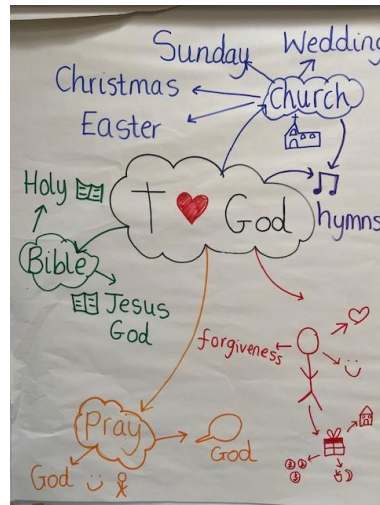 Sunday
Wedding
Christmas
Church
Easter
God
hymns
Holy
Bible
Jesus
God
forgiveness
Pray
God
God